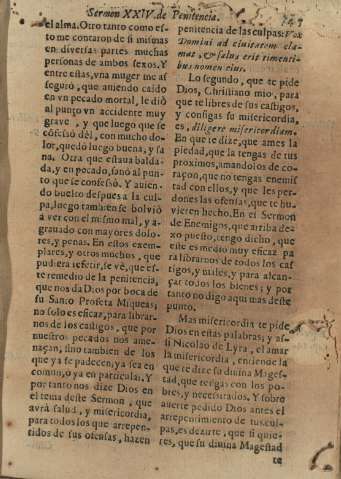 Sermon XXIV. de Penitencia.
247
el alma. Otro tanto como es-
to me contaron de si mismas
en diversas partes muchas
personas de ambos sexos. Y
entre estas, vna muger me as
seguró, que auiendo caido
en vn pecado mortal, le dió
al punto vn accidente muy
grave, y que luego que se
confesó dèl, con mucho do-
lor, quedó luego buena, y sa
na. Otra que estaua balda-
da, y en pecado, sanó al pun-
to que se confesó. Y auien-
do buelto despues a la cul-
pa, luego tambien se bolvió
á ver con el mismo mal, y a-
grauado con mayores dolo-
res, y penas. En estos exem-
plares, y otros muchos, que
pudiera referir, se vè, que es-
te remedio de la penitencia,
que nos dà Dios por boca de
su Santo Profeta Miqueas;
no solo es eficaz, para librar-
nos de los castigos, que por
nuestros pecados nos ame-
naçan, sino tambien de los
que ya se padecen, ya sea en
comun, o ya en particular. Y
por tanto nos dize Dios en
el tema deste Sermon, que
avrá salud, y misericordia,
para todos los que arrepen-
tidos de sus ofensas, hazen
penitencia de las culpas: Vox
Domini ad ciuitatem cla-
mat, & salus erit timenti-
bus nomen eius.
Lo segundo, que te pide
Dios, Christiano mio, para
que te libres de sus castigos,
y consigas su misericordia,
es, diligere misericordiam.
En que te dize, que ames la
piedad, que la tengas de tus
proximos, amandolos de co-
raçon, que no tengas enemis
tad con ellos, y que les per-
dones las ofensas, que te hu-
vieren hecho. En el Sermon
de Enemigos, que arriba de-
xo puesto, tengo dicho, que
este es medio muy eficaz pa
ra librarnos de todos los cas
tigos, y utiles, y para alcan-
çar todos los bienes; y por
tanto no digo aqui mas deste
punto.
Mas misericordia te pide
Dios en estas palabras; y as-
si Nicolao de Lyra, el amar
la misericordia, entiende la
que te dize su divina Mages-
tad, que tengas con los po-
bres, y necessitados. Y sobre
auerte pedido Dios antes el
arrepentimiento de tus cul-
pas, es dezirte, que si quie-
res, que su divina Magestad
te